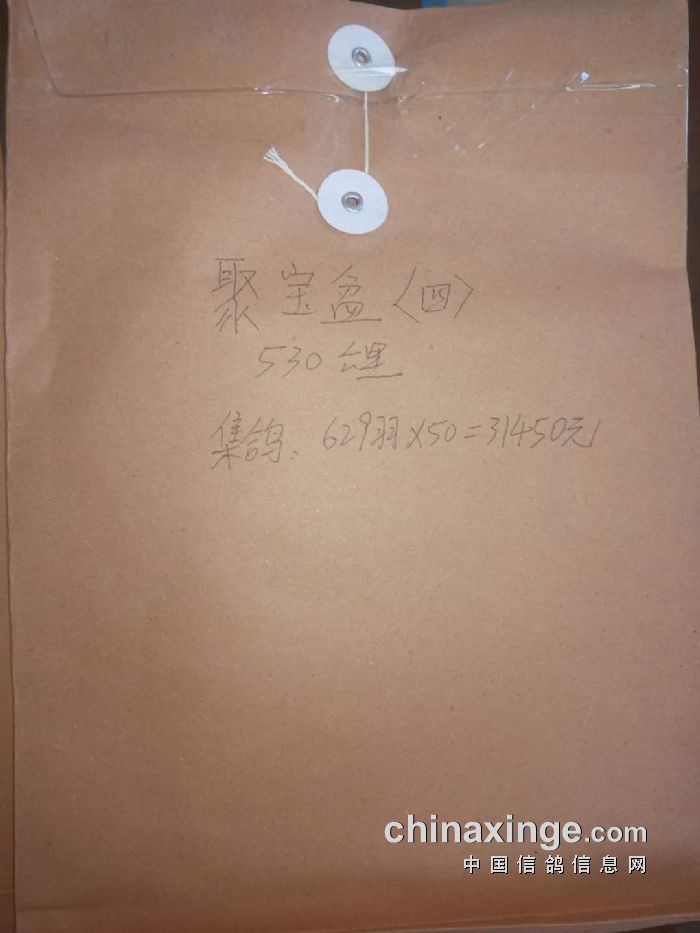 聚宝盆〈四〉
530公里
集鸽：629羽×50=31450元
chinaxinge.com
中国信鸽信息网